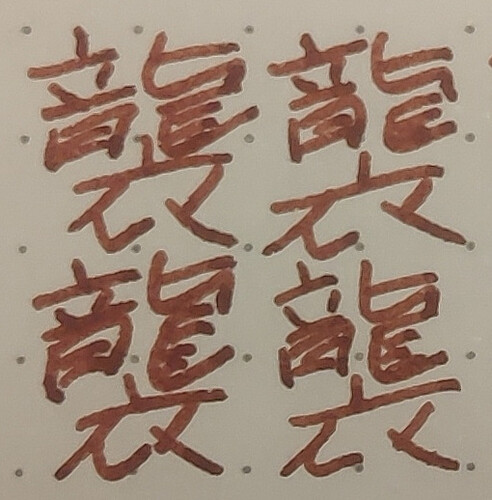 襲襲
襲襲